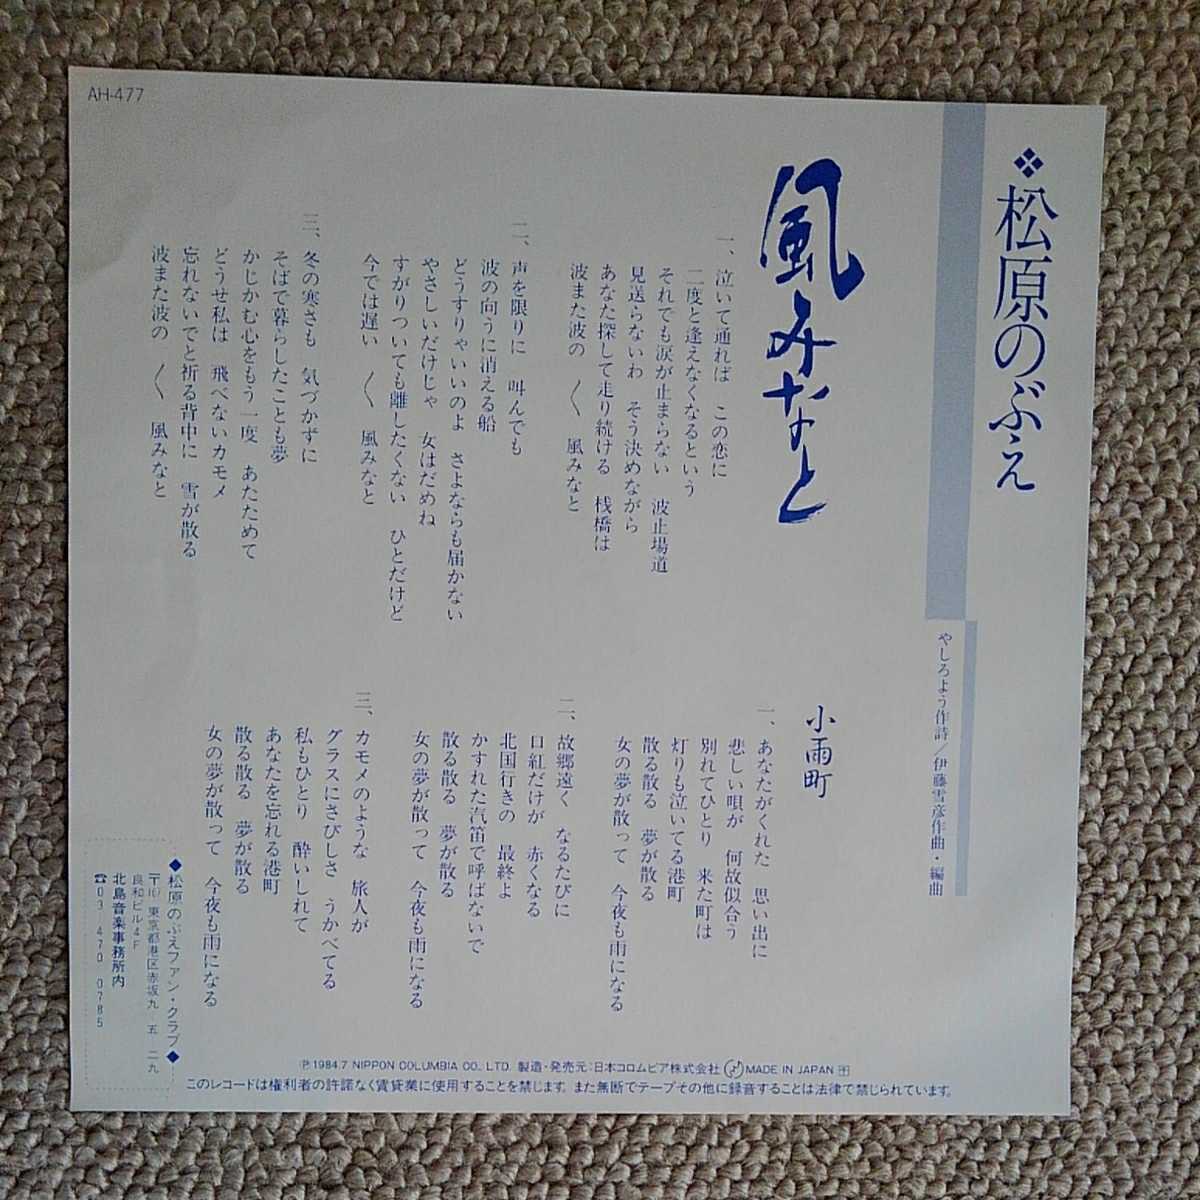 AH-477
❖松原のぶえ
やしろよう作詩／伊藤雪彦作曲・編曲
風みなと
一、泣いて通れば　この恋に
二度と逢えなくなるという
それでも涙が止まらない　波止場道
見送らないわ　そう決めながら
あなた探して走り続ける　桟橋は
波また波の　〳〵　風みなと
二、声を限りに　叫んでも
波の向うに消える船
どうすりゃいいのよ　さよならも届かない
やさしいだけじゃ　女はだめね
すがりついても離したくない　ひとだけど
今では遅い　〳〵　風みなと
三、冬の寒さも　気づかずに
そばで暮らしたことも夢
かじかむ心をもう一度　あたためて
どうせ私は　飛べないカモメ
忘れないでと祈る背中に　雪が散る
波また波の　〳〵　風みなと
小雨町
一、あなたがくれた　思い出に
悲しい唄が　何故似合う
別れてひとり　来た町は
灯りも泣いてる港町
散る散る　夢が散る
女の夢が散って　今夜も雨になる
二、故郷遠く　なるたびに
口紅だけが　赤くなる
北国行きの　最終よ
かすれた汽笛で呼ばないで
散る散る　夢が散る
女の夢が散って　今夜も雨になる
三、カモメのような　旅人が
グラスにさびしさ　うかべてる
私もひとり　酔いしれて
あなたを忘れる港町
散る散る　夢が散る
女の夢が散って　今夜も雨になる
◆松原のぶえファン・クラブ◆
〒107 東京都港区赤坂九 五 二九
良和ビル4F
北島音楽事務所内
☎03 470 0785
Ⓟ1984.7 NIPPON COLUMBIA CO., LTD. 製造・発売元：日本コロムビア株式会社 MADE IN JAPAN
このレコードは権利者の許諾なく賃貸業に使用することを禁じます。また無断でテープその他に録音することは法律で禁じられています。